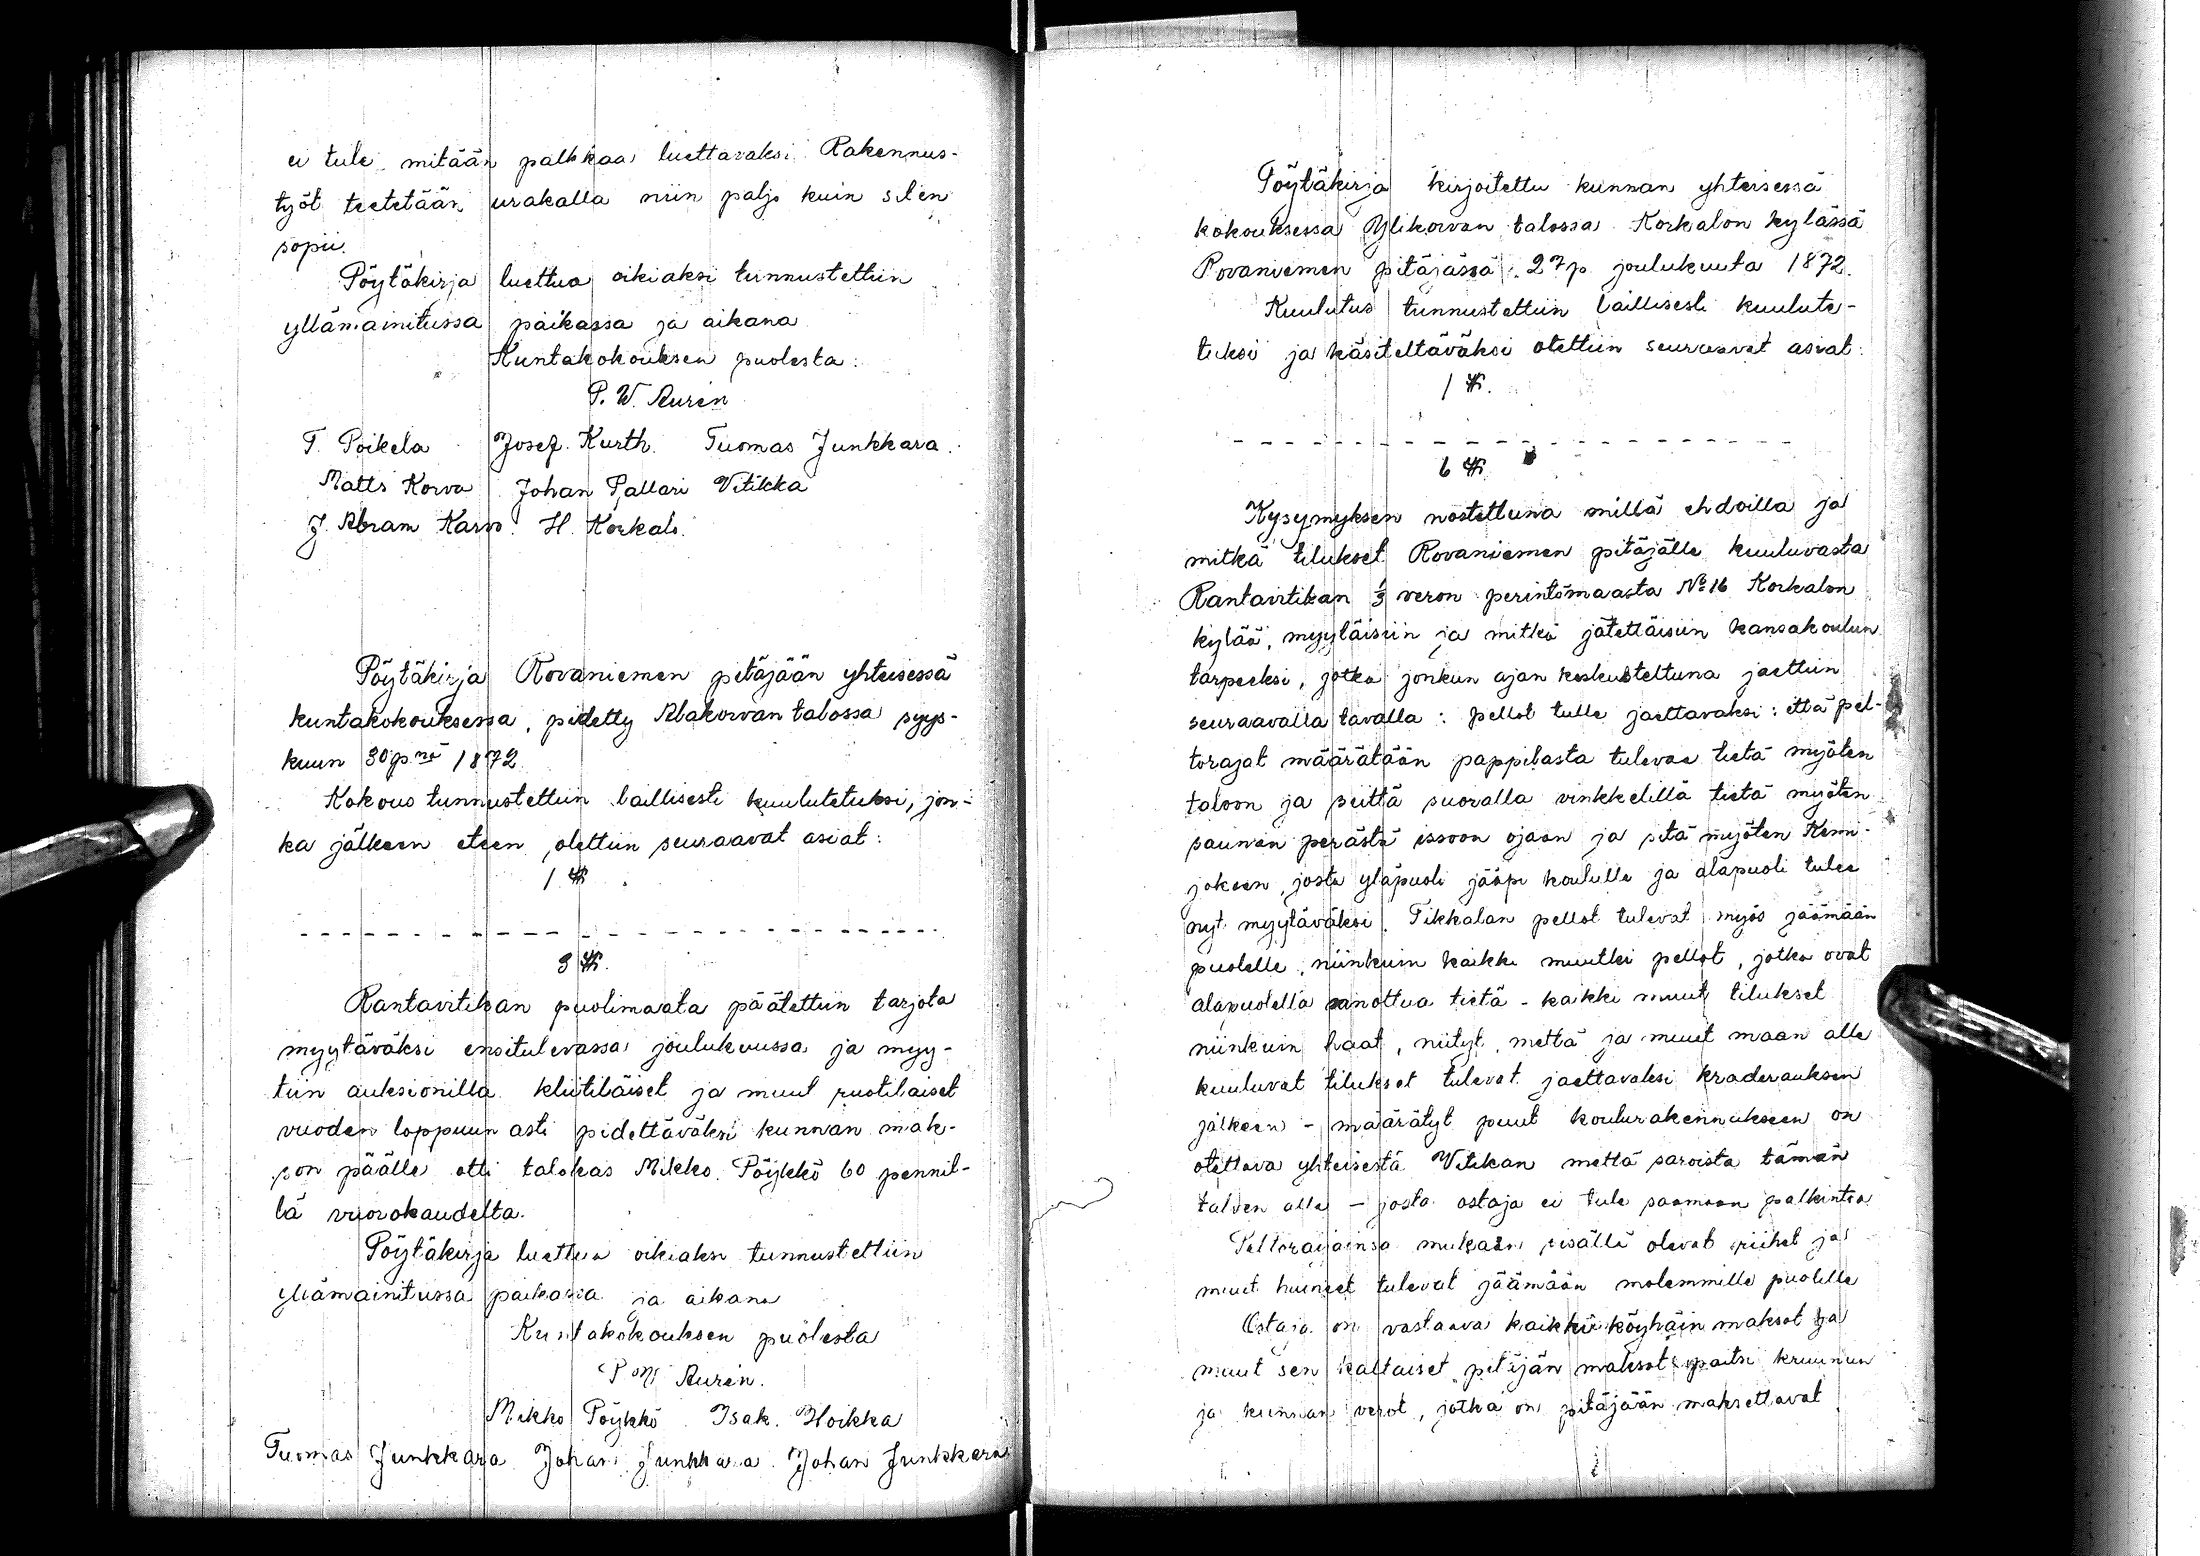 ei tule mitään palkkaa luettavaksi. Rakennus-
työt teetetään urakalla niin paljo kuin siten
sopii.
Pöytäkirja luettua oikiaksi tunnustettiin
yllämainitussa paikassa ja aikana
Kuntakokouksen puolesta:
P. W. Aurén
T. Poikela Josef Kurth. Tuomas Junkkara.
Matts Korva Johan Pallari Vitikka
J. Abram Karvo. H. Korkalo.
Pöytäkirja Rovaniemen pitäjään yhteisessä
kuntakokouksessa, pidetty Alakorvan talossa syys-
kuun 30 p:nä 1872
Kokous tunnustettiin laillisesti kuulutetuksi, jon-
ka jälkeen eteen otettiin seuraavat asiat:
1 §.
- - - - - - - - - - - - - - - - - - - - - -
3 §.
Rantavitikan puolimaata päätettiin tarjota
myytäväksi ensitulevassa joulukuussa ja myy-
tiin auksionilla kliitiläiset ja muut ruotilaiset
vuoden loppuun asti pidettäväksi kunnan mak-
son päälle otti talokas Mikko Pöykkö 60 pennil-
lä vuorokaudelta.
Pöytäkirja luettua oikiaksi tunnustettiin
yllämainitussa paikassa ja aikana
Kuntakokouksen puolesta
P W Aurén.
Mikko Pöykkö Isak. Hoikka
Tuomas Junkkara Johan Junkkara. Johan Junkkara
Pöytäkirja kirjoitettu kunnan yhteisessä
kokouksessa Ylikorvan talossa Korkalon kylässä
Rovaniemen pitäjässä 27 p. joulukuuta 1872.
Kuulutus tunnustettiin laillisesti kuulute-
tuksi ja käsiteltäväksi otettiin seuraavat asiat:
1 §.
- - - - - - - - - - - - - - - - - - - -
6 §.
Kysymyksen nostettuna millä ehdoilla ja
mitkä tilukset Rovaniemen pitäjälle kuuluvasta
Rantavitikan 1/3 veron perintömaasta No 16 Korkalon
kylää, myytäisiin ja mitkä jätettäisiin kansakoulun
tarpeeksi, jotka jonkun ajan keskusteltuna jaettiin
seuraavalla tavalla: pellot tulle jaettavaksi: että pel-
torajat määrätään pappilasta tulevaa tietä myöten
taloon ja seittä suoralla vinkkelillä tietä myöten
saunan perästä issoon ojaan ja sitä myöten Kemi-
jokeen, josta yläpuoli jääpi koululle ja alapuoli tulee
nyt myytäväksi. Tikkalan pellot tulevat myös jäämään
puolelle, niinkuin kaikki muutki pellot, jotka ovat
alapuolella sanottua tietä - kaikki muut tilukset
niinkuin haat, niityt, mettä ja muut maan alle
kuuluvat tilukset tulevat jaettavaksi kraderauksen
jälkeen - määrätyt puut koulurakennukseen on
otettava yhteisestä Vitikan mettä saroista tämän
talven alla - josta ostaja ei tule saamaan palkintoa
Peltorajainsa mukaan sisällä olevat riihet ja
muut huoneet tulevat jäämään molemmille puolille
Ostaja on vastaava kaikki köyhäin maksot ja
muut sen kaltaiset pitäjän maksot paitsi kruunun
ja kunnan verot, jotka on pitäjään maksettavat